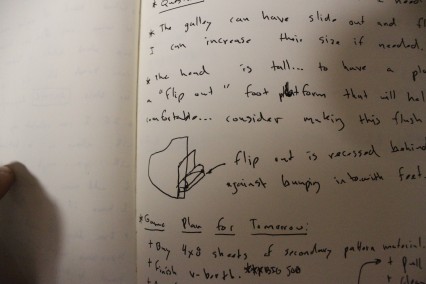 * Ques
* The galley can have slide out and fl
I can increase their size if needed.
* The head is tall... to have a pla
a "flip out" foot platform that will hel
comfortable... consider making this flush
flip out is recessed behind
against bumping into with feet.
* Game Plan for Tomorrow:
+ Buy 4x8 sheets of secondary pattern material.
+ Finish v-berth.
+ pull